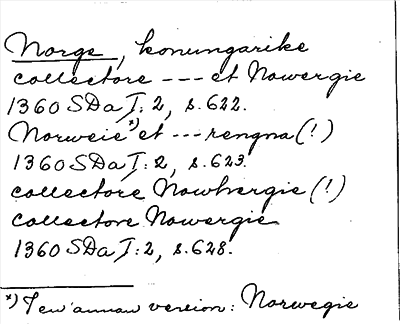 Norge, konungarike
collectore --- et Nowergie
1360 SDa I: 2, s. 622.
Norweie *) et --- rengna (!)
1360 SDa I: 2, s. 623.
collectore Nowhergie (!)
collectore Nowergie
1360 SDa I: 2, s. 628.
*) I en annan version: Norwegie